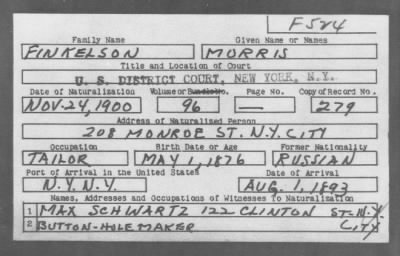 F524
Family Name Given Name or Names
FINKELSON MORRIS
Title and Location of Court
U. S. DISTRICT COURT, NEW YORK, N.Y.
Date of Naturalization Volume or Bundle No. Page No. Copy of Record No.
NOV. 24, 1900 96 — 279
Address of Naturalized Person
208 MONROE ST. N.Y. CITY
Occupation Birth Date or Age Former Nationality
TAILOR MAY 1, 1876 RUSSIAN
Port of Arrival in the United States Date of Arrival
N.Y. N.Y. AUG. 1, 1893
Names, Addresses and Occupations of Witnesses To Naturalization
1 MAX SCHWARTZ 122 CLINTON ST. N.Y.
2 BUTTON-HOLE MAKER CITY